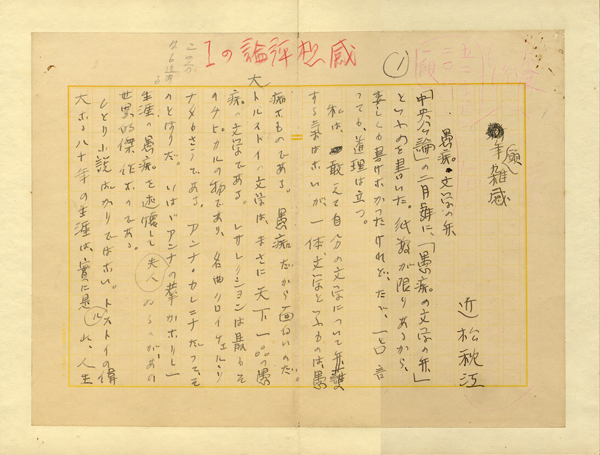 感想評論の I
(1)
年頭雑感
近松秋江
愚痴文学の弁
「中央公論」の二月号に、「愚痴の文学の弁」
といふのを書いた。紙数が限りあるから、
委しくも書けなかつたけれど、たゞ、一と口言
つても、道理は立つ。
私は、敢えて自分の文学について弁難
する気はないが、一体文学といふものは、愚
痴なものである。愚痴だから面白いのだ。
大トルストイの文学は、まさに天下一品の愚
痴の文学である。レザレクシヨンは最もそ
のチピカルの物であり、名曲クロイツエル・ソ
ナタもさうである。アンナ・カレニナだつてそ
のとほりだ。いはゞアンナの
生涯の愚痴を述懐して夫人
世界的傑作なのである。
ひとり小説ばかりではない。トルストイの偉
大な八十年の生涯は、實に れ、人生